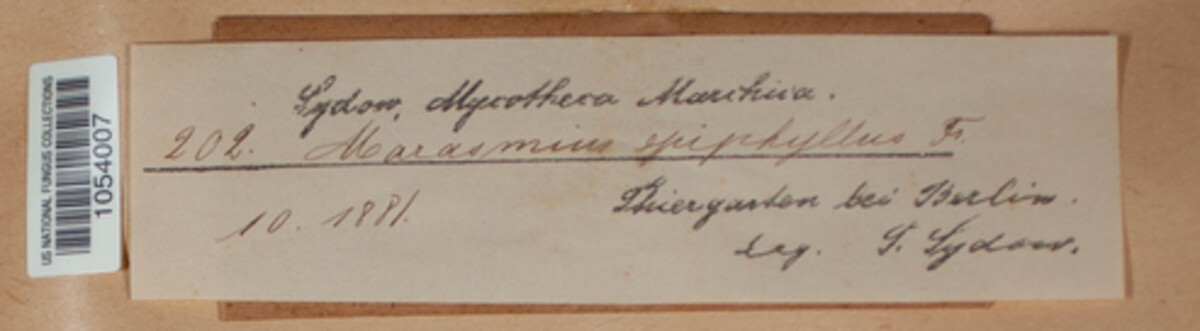 US NATIONAL FUNGUS COLLECTIONS
1054007
Sydow, Mycotheca Marchica.
202. Marasmius epiphyllus Fr.
10. 1881.
Thiergarten bei Berlin.
Leg. P. Sydow.